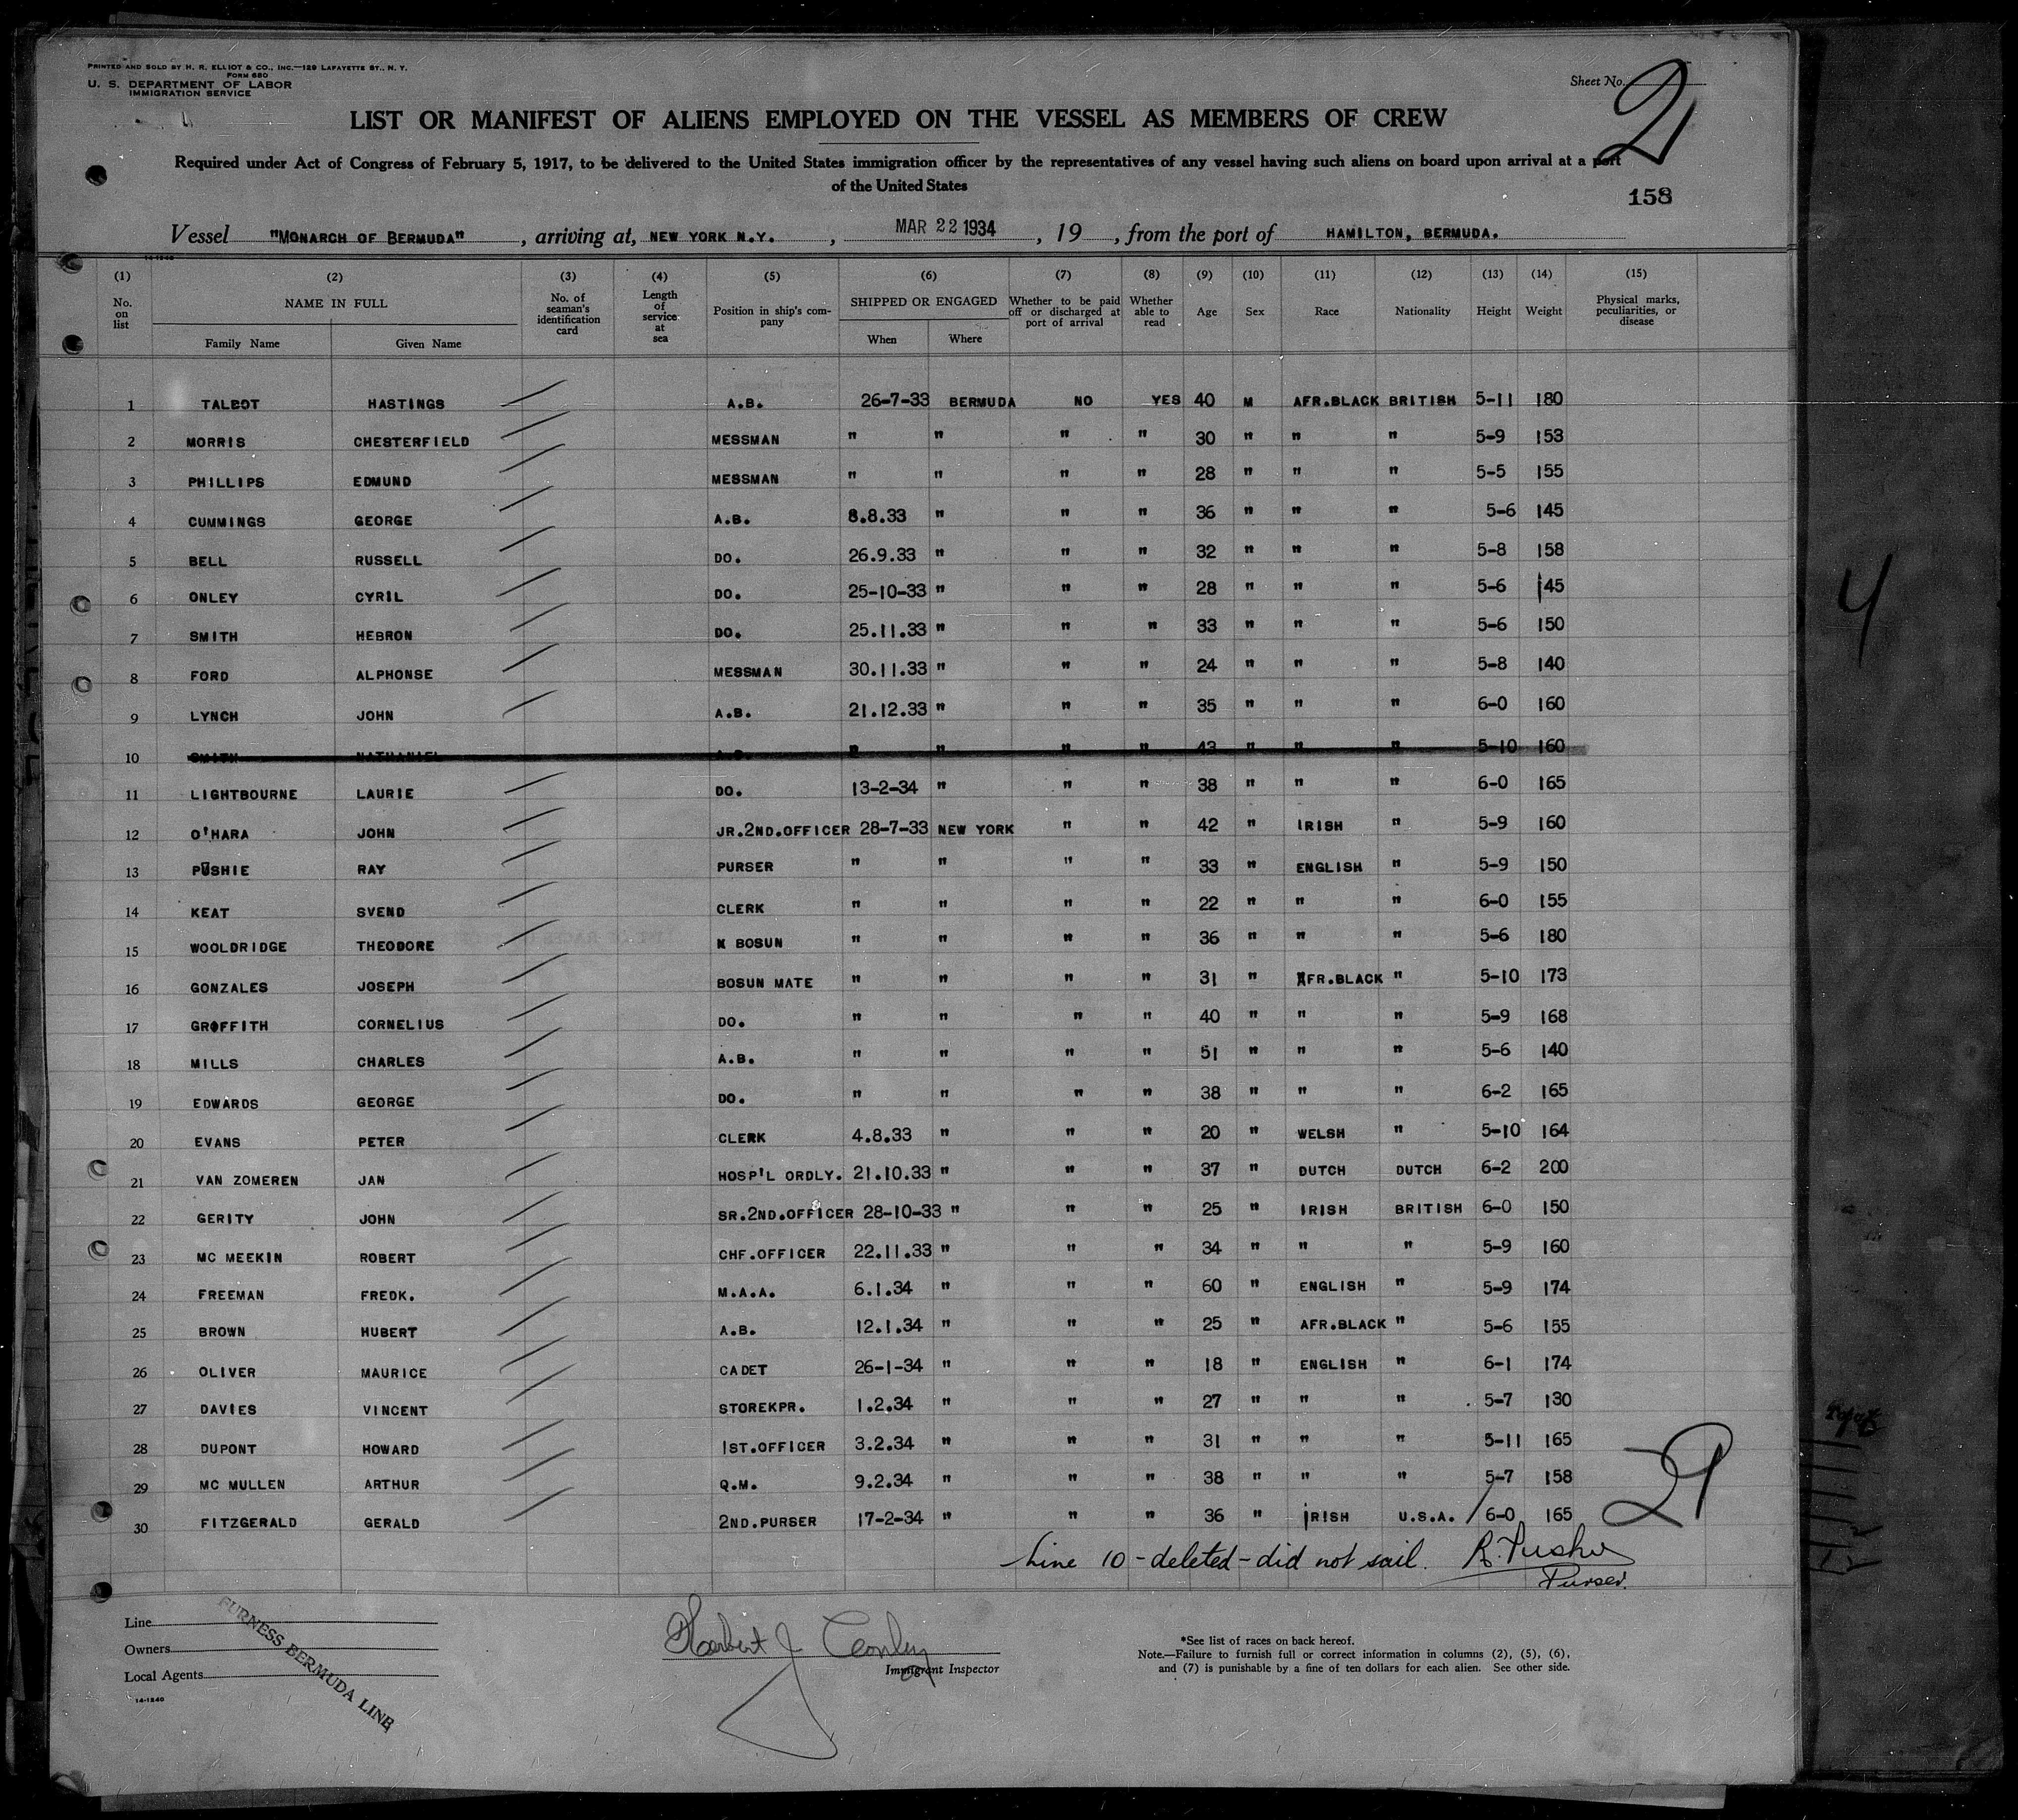 PRINTED AND SOLD BY H. R. ELLIOT & CO., INC.—129 LAFAYETTE ST., N. Y.
FORM 680
U. S. DEPARTMENT OF LABOR
IMMIGRATION SERVICE
Sheet No. 2
LIST OR MANIFEST OF ALIENS EMPLOYED ON THE VESSEL AS MEMBERS OF CREW
Required under Act of Congress of February 5, 1917, to be delivered to the United States immigration officer by the representatives of any vessel having such aliens on board upon arrival at a port
of the United States
158
Vessel "MONARCH OF BERMUDA", arriving at, NEW YORK N.Y., MAR 22 1934, 19, from the port of HAMILTON, BERMUDA.
14-1240
(1) (2) (3) (4) (5) (6) (7) (8) (9) (10) (11) (12) (13) (14) (15)
No. on list NAME IN FULL Family Name Given Name No. of seaman's identification card Length of service at sea Position in ship's company SHIPPED OR ENGAGED When Where Whether to be paid off or discharged at port of arrival Whether able to read Age Sex Race Nationality Height Weight Physical marks, peculiarities, or disease
1 TALBOT HASTINGS A.B. 26-7-33 BERMUDA NO YES 40 M AFR.BLACK BRITISH 5-11 180
2 MORRIS CHESTERFIELD MESSMAN " " " " 30 " " " 5-9 153
3 PHILLIPS EDMUND MESSMAN " " " " 28 " " " 5-5 155
4 CUMMINGS GEORGE A.B. 8.8.33 " " " 36 " " " 5-6 145
5 BELL RUSSELL DO. 26.9.33 " " " 32 " " " 5-8 158
6 ONLEY CYRIL DO. 25-10-33 " " " 28 " " " 5-6 145
7 SMITH HEBRON DO. 25.11.33 " " " 33 " " " 5-6 150
8 FORD ALPHONSE MESSMAN 30.11.33 " " " 24 " " " 5-8 140
9 LYNCH JOHN A.B. 21.12.33 " " " 35 " " " 6-0 160
10 SMITH NATHANIEL A.B. " " " " 43 " " " 5-10 160
11 LIGHTBOURNE LAURIE DO. 13-2-34 " " " 38 " " " 6-0 165
12 O'HARA JOHN JR.2ND.OFFICER 28-7-33 NEW YORK " " 42 " IRISH " 5-9 160
13 PUSHIE RAY PURSER " " " " 33 " ENGLISH " 5-9 150
14 KEAT SVEND CLERK " " " " 22 " " " 6-0 155
15 WOOLDRIDGE THEODORE X BOSUN " " " " 36 " " " 5-6 180
16 GONZALES JOSEPH BOSUN MATE " " " " 31 " AFR.BLACK " 5-10 173
17 GRIFFITH CORNELIUS DO. " " " " 40 " " " 5-9 168
18 MILLS CHARLES A.B. " " " " 51 " " " 5-6 140
19 EDWARDS GEORGE DO. " " " " 38 " " " 6-2 165
20 EVANS PETER CLERK 4.8.33 " " " 20 " WELSH " 5-10 164
21 VAN ZOMEREN JAN HOSP'L ORDLY. 21.10.33 " " " 37 " DUTCH DUTCH 6-2 200
22 GERITY JOHN SR.2ND.OFFICER 28-10-33 " " " 25 " IRISH BRITISH 6-0 150
23 MC MEEKIN ROBERT CHF.OFFICER 22.11.33 " " " 34 " " " 5-9 160
24 FREEMAN FREDK. M.A.A. 6.1.34 " " " 60 " ENGLISH " 5-9 174
25 BROWN HUBERT A.B. 12.1.34 " " " 25 " AFR.BLACK " 5-6 155
26 OLIVER MAURICE CADET 26-1-34 " " " 18 " ENGLISH " 6-1 174
27 DAVIES VINCENT STOREKPR. 1.2.34 " " " 27 " " " 5-7 130
28 DUPONT HOWARD 1ST.OFFICER 3.2.34 " " " 31 " " " 5-11 165
29 MC MULLEN ARTHUR Q.M. 9.2.34 " " " 38 " " " 5-7 158
30 FITZGERALD GERALD 2ND.PURSER 17-2-34 " " " 36 " IRISH U.S.A. 6-0 165
29
4
Line 10 - deleted - did not sail. R. Pushie
Purser.
Line
Owners
Local Agents
FURNESS BERMUDA LINE
14-1240
Herbert J
Immigrant Inspector
*See list of races on back hereof.
Note.—Failure to furnish full or correct information in columns (2), (5), (6),
and (7) is punishable by a fine of ten dollars for each alien. See other side.